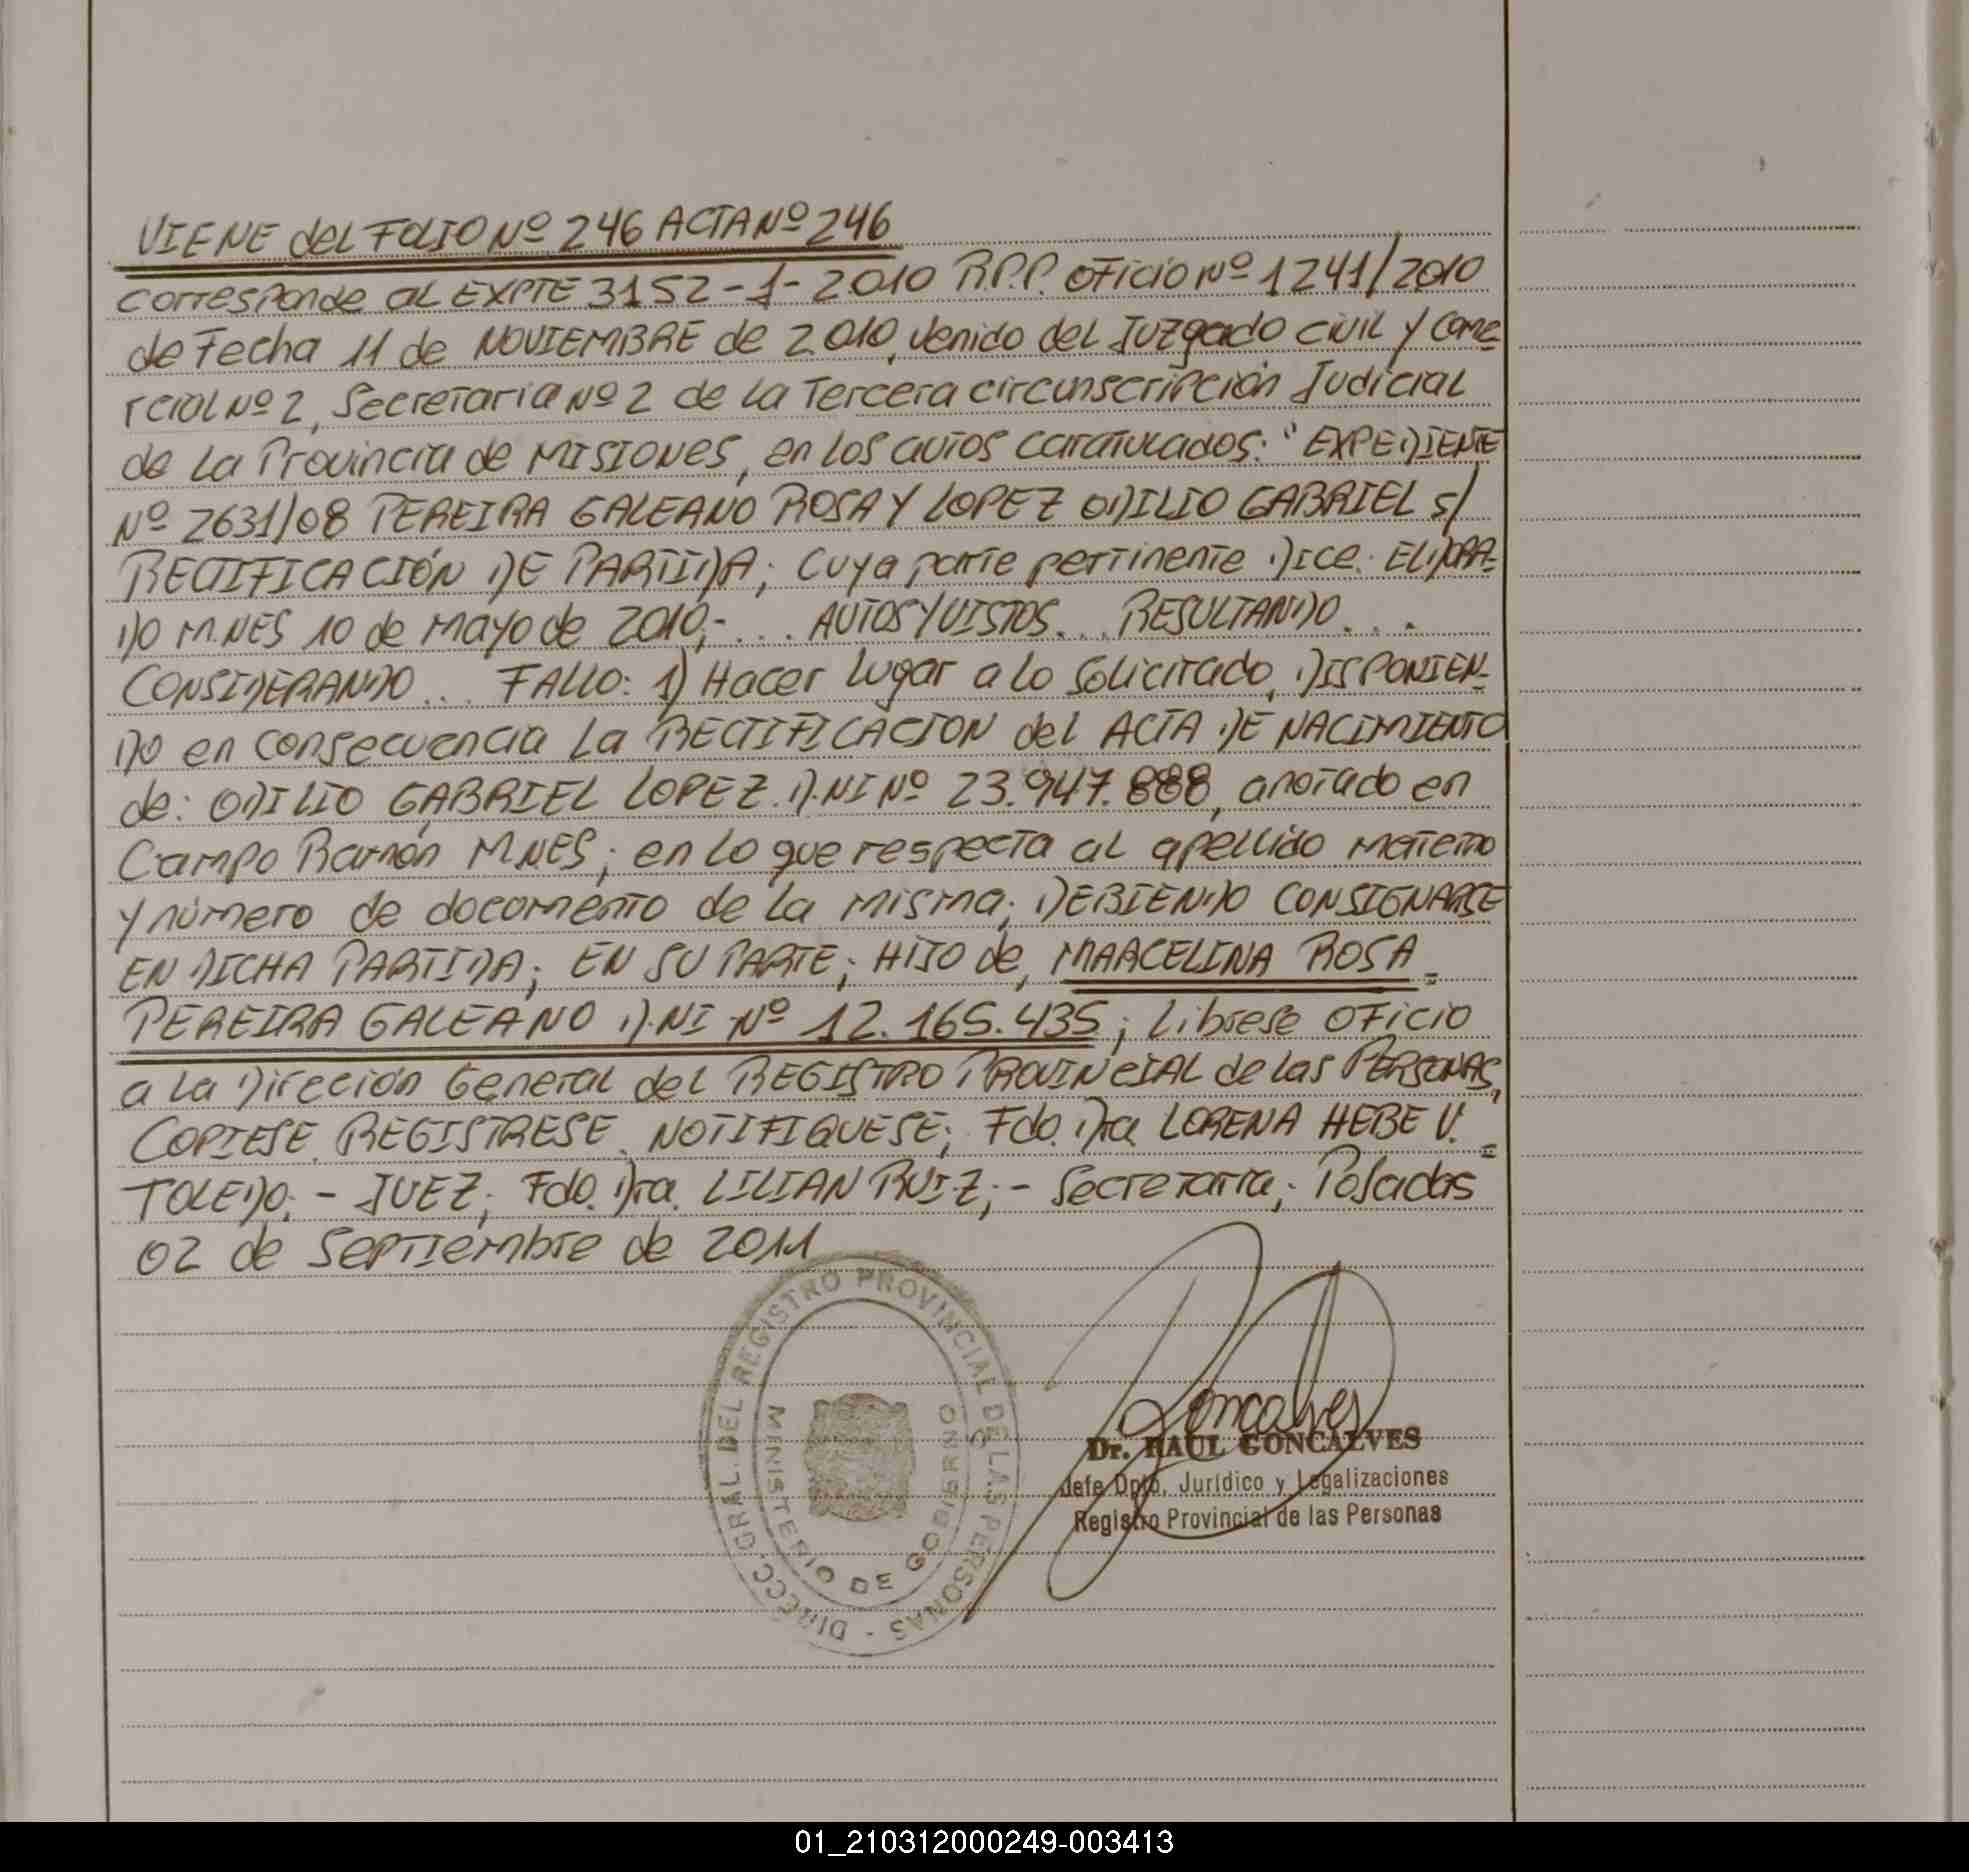 VIENE del FOLIO Nº 246 ACTA Nº 246
corresponde al EXPTE 3152-1-2010 R.P.P. oficio Nº 1241/2010
de Fecha 11 de NOVIEMBRE de 2010, venido del Juzgado Civil y Come
rcial Nº 2, Secretaria Nº 2 de la Tercera circunscripción Judicial
de la Provincia de MISIONES, en los autos caratulados: "EXPEDIENTE
Nº 2631/08 PEREIRA GALEANO ROSA Y LOPEZ ODILIO GABRIEL s/
RECTIFICACIÓN DE PARTIDA; Cuya parte pertinente Dice: ELDORA-
DO M.NES 10 de mayo de 2010,- ... AUTOS Y VISTOS... RESULTANDO...
CONSIDERANDO... FALLO: 1) Hacer lugar a lo solicitado, DISPONIEN-
DO en consecuencia la RECTIFICACION del ACTA DE NACIMIENTO
de: ODILIO GABRIEL LOPEZ. D.NI Nº 23.947.888, anotado en
Campo Ramón M.NES; en lo que respecta al apellido materno
y número de documento de la misma; DEBIENDO CONSIGNARSE
EN DICHA PARTIDA; EN SU PARTE; HIJO de, MARCELINA ROSA
PEREIRA GALEANO D.NI Nº 12.165.435; Librese oficio
a la Direción General del REGISTRO PROVINCIAL de las PERSONAS,
COPIESE, REGISTRESE, NOTIFIQUESE; Fdo. Dra LORENA HEBE V.
TOLEDO; - JUEZ; Fdo. Dra. LILIAN RUIZ; - Secretaria; Posadas
02 de Septiembre de 2011
DIRECC. GRAL. DEL REGISTRO PROVINCIAL DE LAS PERSONAS -
MINISTERIO DE GOBIERNO
Goncalves
Dr. RAUL GONCALVES
Jefe Dpto. Jurídico y Legalizaciones
Registro Provincial de las Personas
01_210312000249-003413